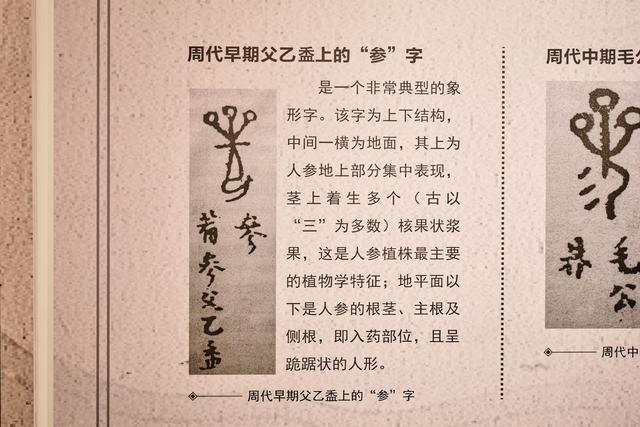 周代早期父乙盉上的“参”字
是一个非常典型的象
形字。该字为上下结构，
中间一横为地面，其上为
人参地上部分集中表现，
茎上着生多个（古以
“三”为多数）核果状浆
果，这是人参植株最主要
的植物学特征；地平面以
下是人参的根茎、主根及
侧根，即入药部位，且呈
跪踞状的人形。
参父乙盉
周代早期父乙盉上的“参”字
周代中期毛公
毛公
周代中